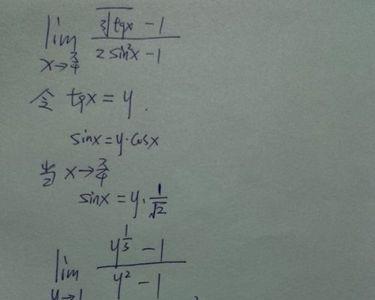 lim (∛tgx - 1) / (2sin²x - 1)
x→3/4
令 tgx = y .
sinx = y·cosx
当 x→3/4
sinx = y · 1/√2
lim (y^(1/3) - 1) / (y² - 1)
y→1